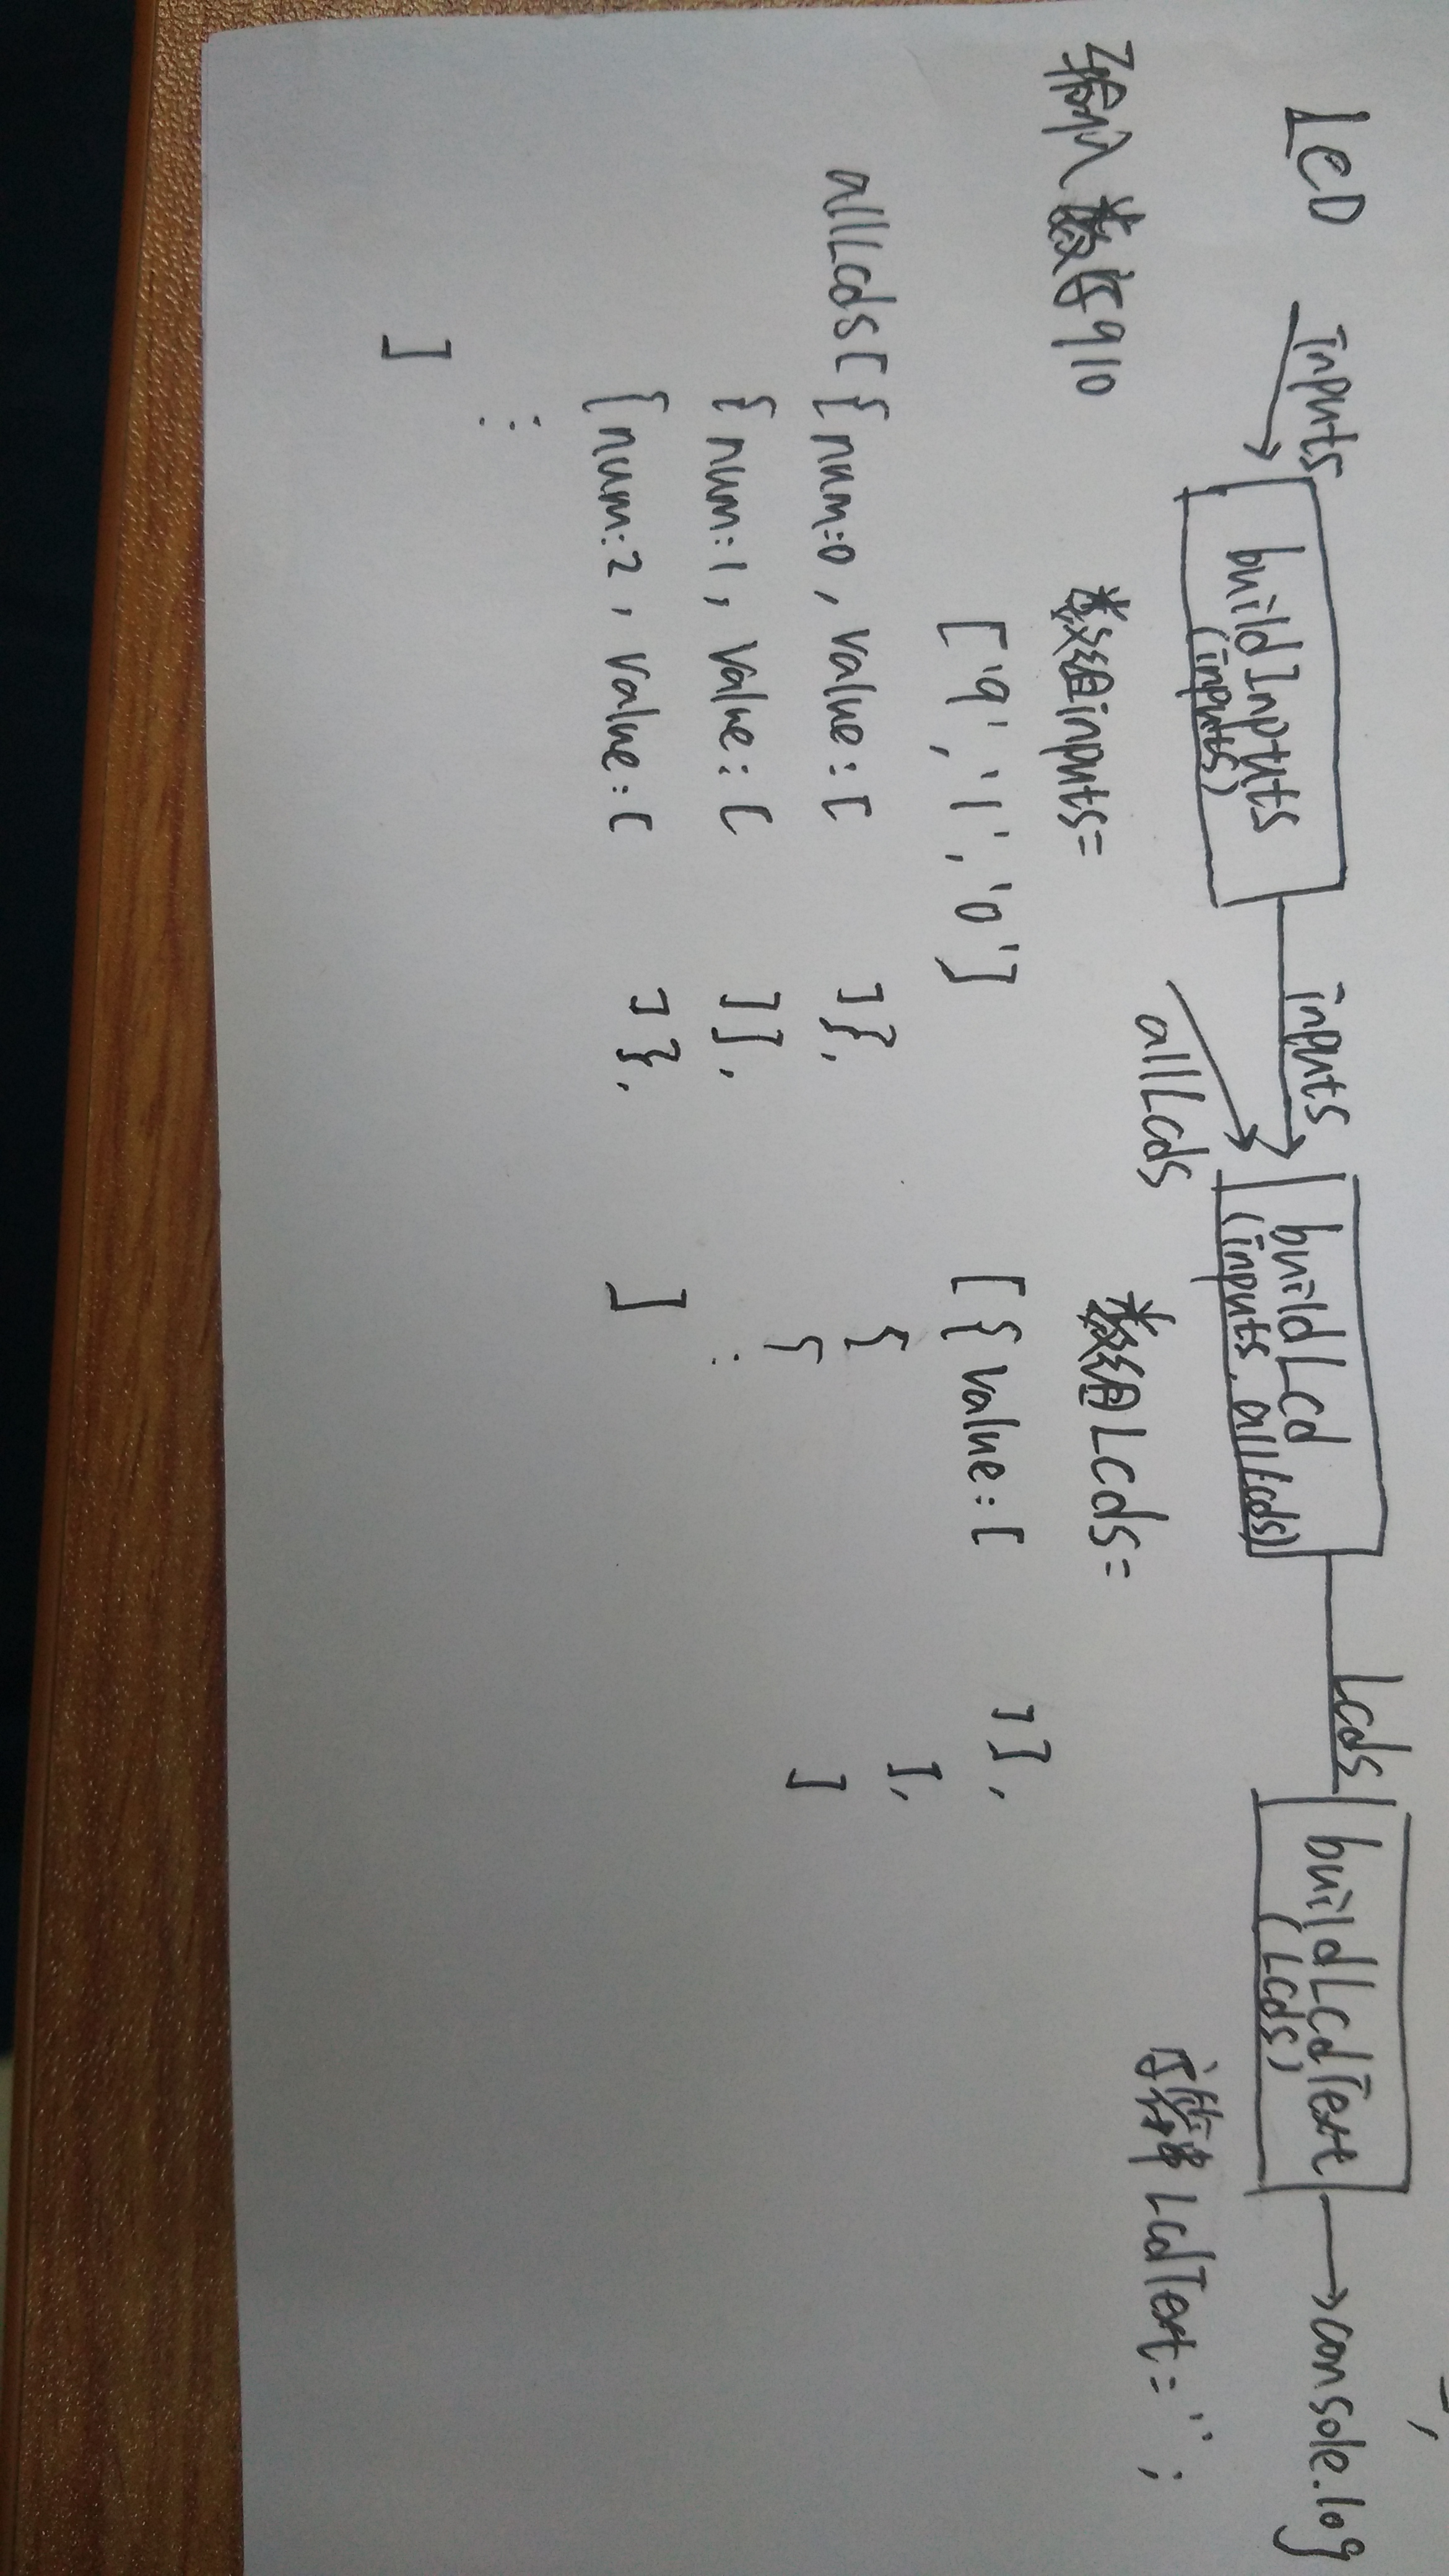 LCD
inputs
buildInputs
(inputs)
inputs
allLcds
buildLcd
(inputs, allLcds)
Lcds
buildLcdText
(Lcds)
console.log
输入数字910
数组inputs=
['9', '1', '0']
数组Lcds=
[{value:[ ]},
{ },
{ }
⋮
]
字符串LcdText='';
allLcds[{num:0, value:[ ]},
{num:1, value:[ ]},
{num:2, value:[ ]},
⋮
]